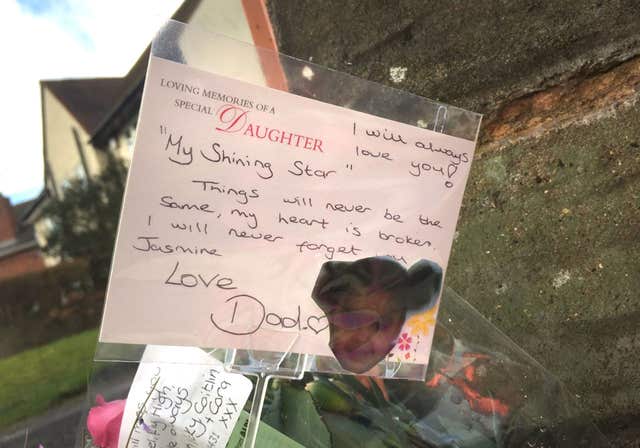 LOVING MEMORIES OF A
SPECIAL DAUGHTER
I will always
love you!
"My Shining Star"
Things will never be the
same, my heart is broken.
I will never forget
Jasmine
Love
Dad
you
High
always
Caitlin
xxx